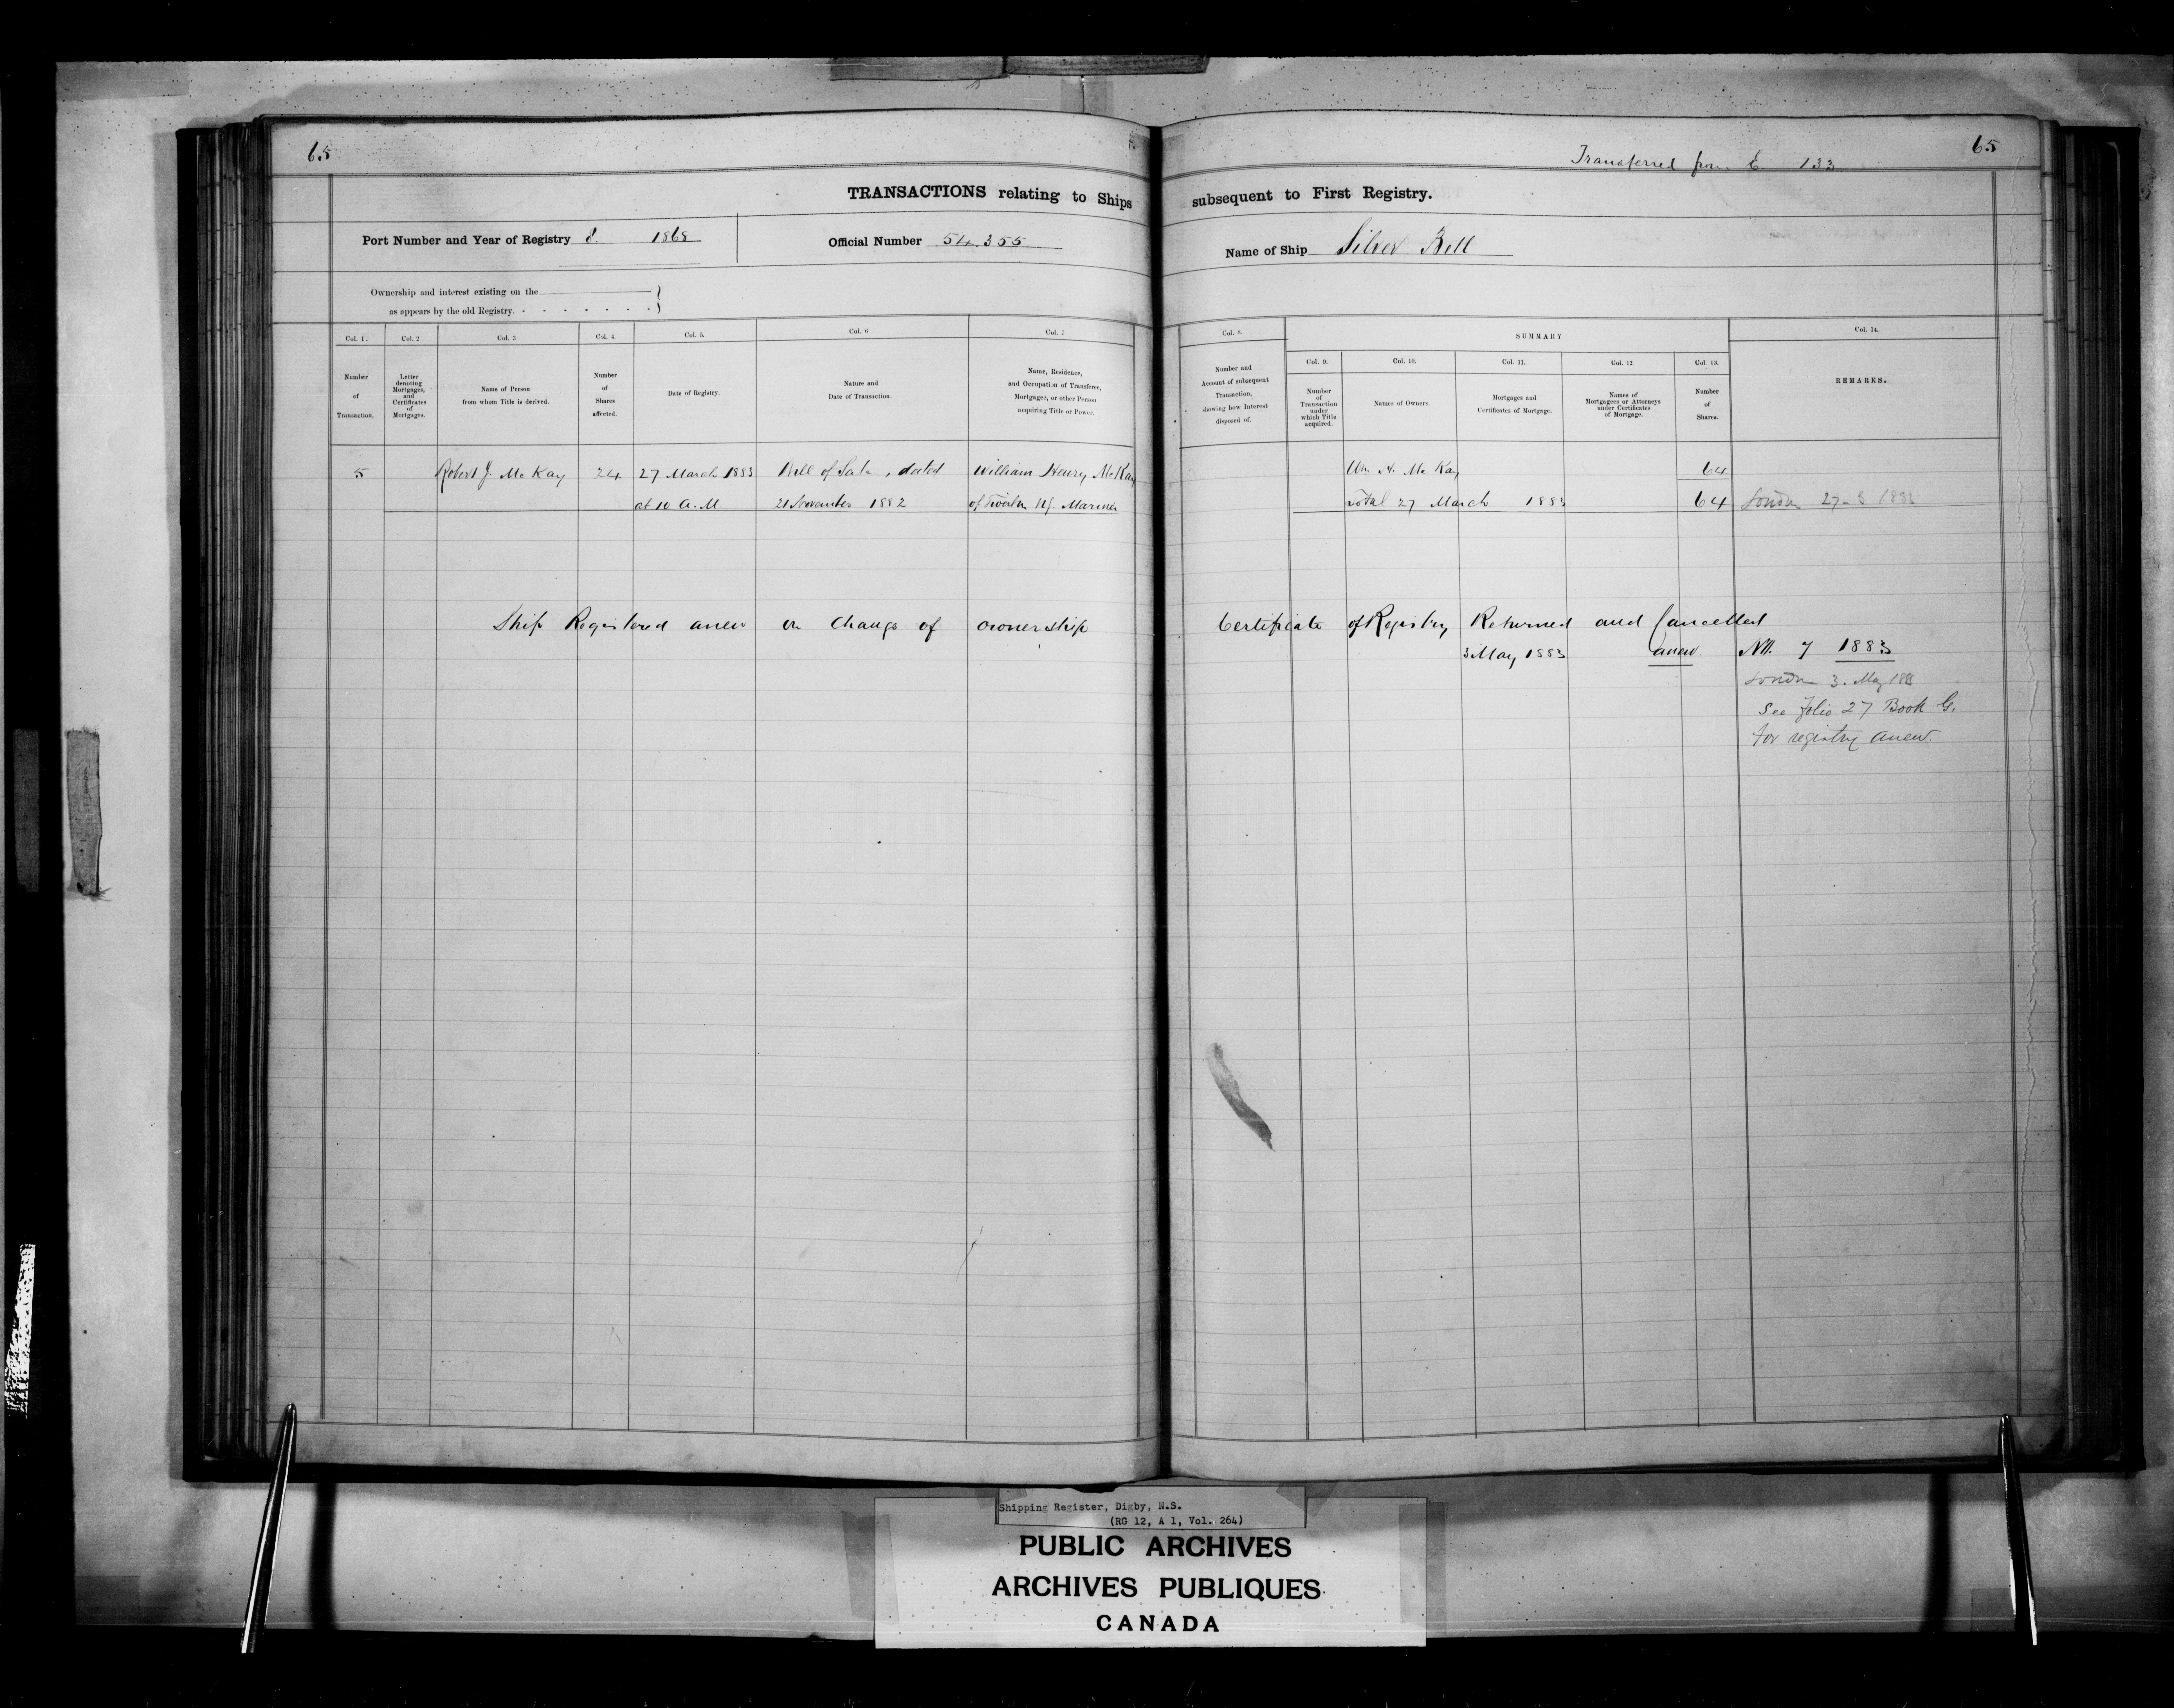 65
65
Transferred from E 133
TRANSACTIONS relating to Ships subsequent to First Registry.
Port Number and Year of Registry 8. 1868
Official Number 54.355
Name of Ship Silver Bell
Ownership and interest existing on the
as appears by the old Registry.
Col. 1.
Col. 2
Col. 3
Col. 4.
Col. 5.
Col. 6
Col. 7
Number
of
Transaction.
Letter
denoting
Mortgages,
and
Certificates
of
Mortgages.
Name of Person
from whom Title is derived.
Number
of
Shares
affected.
Date of Registry.
Nature and
Date of Transaction.
Name, Residence,
and Occupation of Transferee,
Mortgagee, or other Person
acquiring Title or Power.
Col. 8.
SUMMARY
Col. 14.
Col. 9.
Col. 10.
Col. 11.
Col. 12
Col. 13.
Number and
Account of subsequent
Transaction,
showing how Interest
disposed of.
Number
of
Transaction
under
which Title
acquired.
Names of Owners.
Mortgages and
Certificates of Mortgage.
Names of
Mortgagees or Attorneys
under Certificates
of Mortgage.
Number
of
Shares.
REMARKS.
5 Robert J. McKay 24 27 March 1883 Bill of Sale, dated William Henry McKay
at 10 A.M. 21 November 1882 of Mariner
Wm H. McKay 64
Total 27 March 1883 64 London 27-3 1883
Ship Registered anew on change of ownership Certificate of Registry Returned and Cancelled
3 May 1883 anew. No. 7 1883
London 3. May 1883
See folio 27 Book G.
for registry anew.
Shipping Register, Digby, N.S.
(RG 12, A 1, Vol. 264)
PUBLIC ARCHIVES
ARCHIVES PUBLIQUES
CANADA